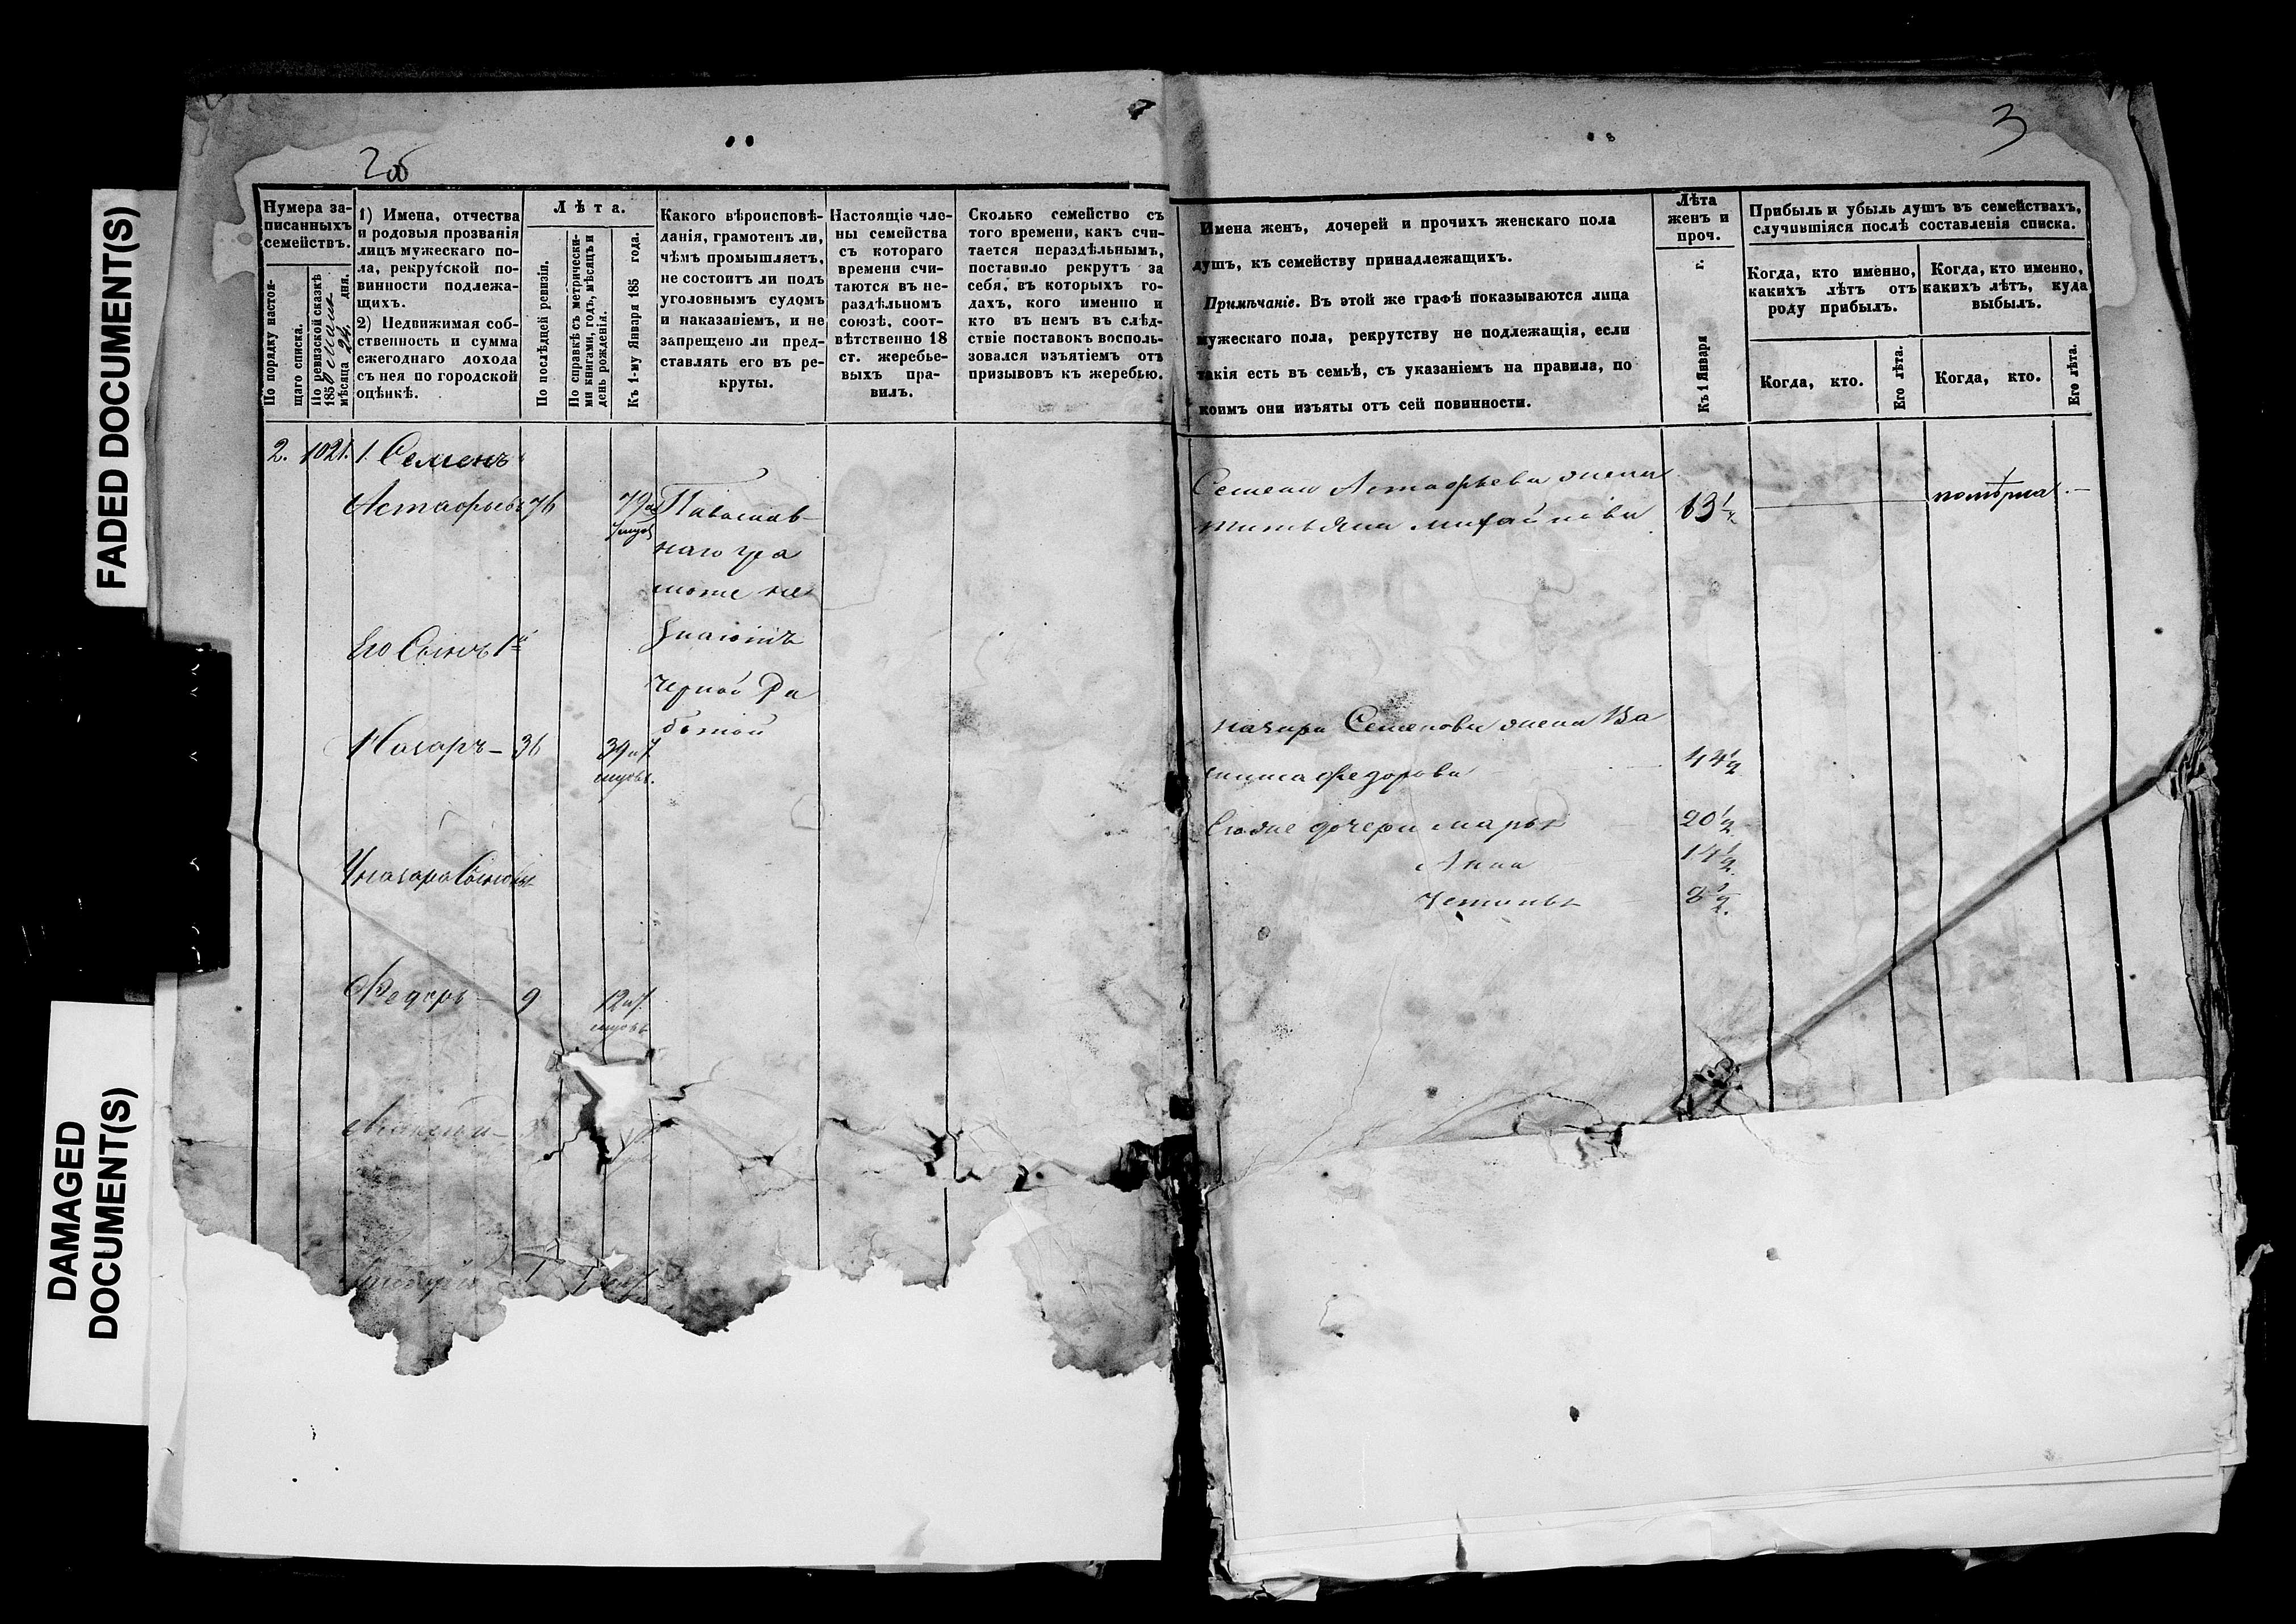 FADED DOCUMENT(S)
DAMAGED
DOCUMENT(S)
2об
Нумера за-
писанныхъ
семействъ.
По порядку настоя-
щаго списка.
По ревизской сказкѣ
185
мѣсяца 24. дня.
1) Имена, отчества
и родовыя прозванія
лицъ мужескаго по-
ла, рекрутской по-
винности подлежа-
щихъ.
2) Недвижимая соб-
ственность и сумма
ежегоднаго дохода
съ нея по городской
оцѣнкѣ.
Лѣта.
По послѣдней ревизіи.
По справкѣ съ метрически-
ми книгами, годъ, мѣсяцъ и
день рожденія.
Къ 1-му Января 185 года.
Какого вѣроисповѣ-
данія, грамотенъ ли,
чѣмъ промышляетъ,
не состоитъ ли подъ
уголовнымъ судомъ
и наказаніемъ, и не
запрещено ли пред-
ставлять его въ ре-
круты.
Настоящіе чле-
ны семейства
съ котораго
времени счи-
таются въ не-
раздѣльномъ
союзѣ, соот-
вѣтственно 18
ст. жеребье-
выхъ пра-
вилъ.
Сколько семейство съ
того времени, какъ счи-
тается нераздѣльнымъ,
поставило рекрутъ за
себя, въ которыхъ го-
дахъ, кого именно и
кто въ немъ въ слѣд-
ствіе поставокъ восполь-
зовался изъятіемъ отъ
призывовъ къ жеребью.
2. 1021. 1. Семенъ
Астафьевъ 76 79
Павослав-
наго гра
моте не
Его Сынъ 1й
знаютъ
черной Ра
ботой
Назаръ — 36 39 и 7
У назара Сыновья
Федоръ 9 12 и 7.
3
Имена женъ, дочерей и прочихъ женскаго пола
душъ, къ семейству принадлежащихъ.
Примѣчаніе. Въ этой же графѣ показываются лица
мужескаго пола, рекрутству не подлежащія, если
такія есть въ семьѣ, съ указаніемъ на правила, по
коимъ они изъяты отъ сей повинности.
Лѣта
женъ и
проч.
Къ 1 Января г.
Прибыль и убыль душъ въ семействахъ,
случившіяся послѣ составленія списка.
Когда, кто именно,
какихъ лѣтъ отъ
роду прибылъ.
Когда, кто именно,
какихъ лѣтъ, куда
выбылъ.
Когда, кто.
Его лѣта.
Когда, кто.
Его лѣта.
Семена Астафьева жена
татьяна михайлова
померла
назара Семенова жена Ва
федорова 44 1/2
Евоже дочери марья 20 1/2
Анна 14 1/2
Устинья 8 1/2.